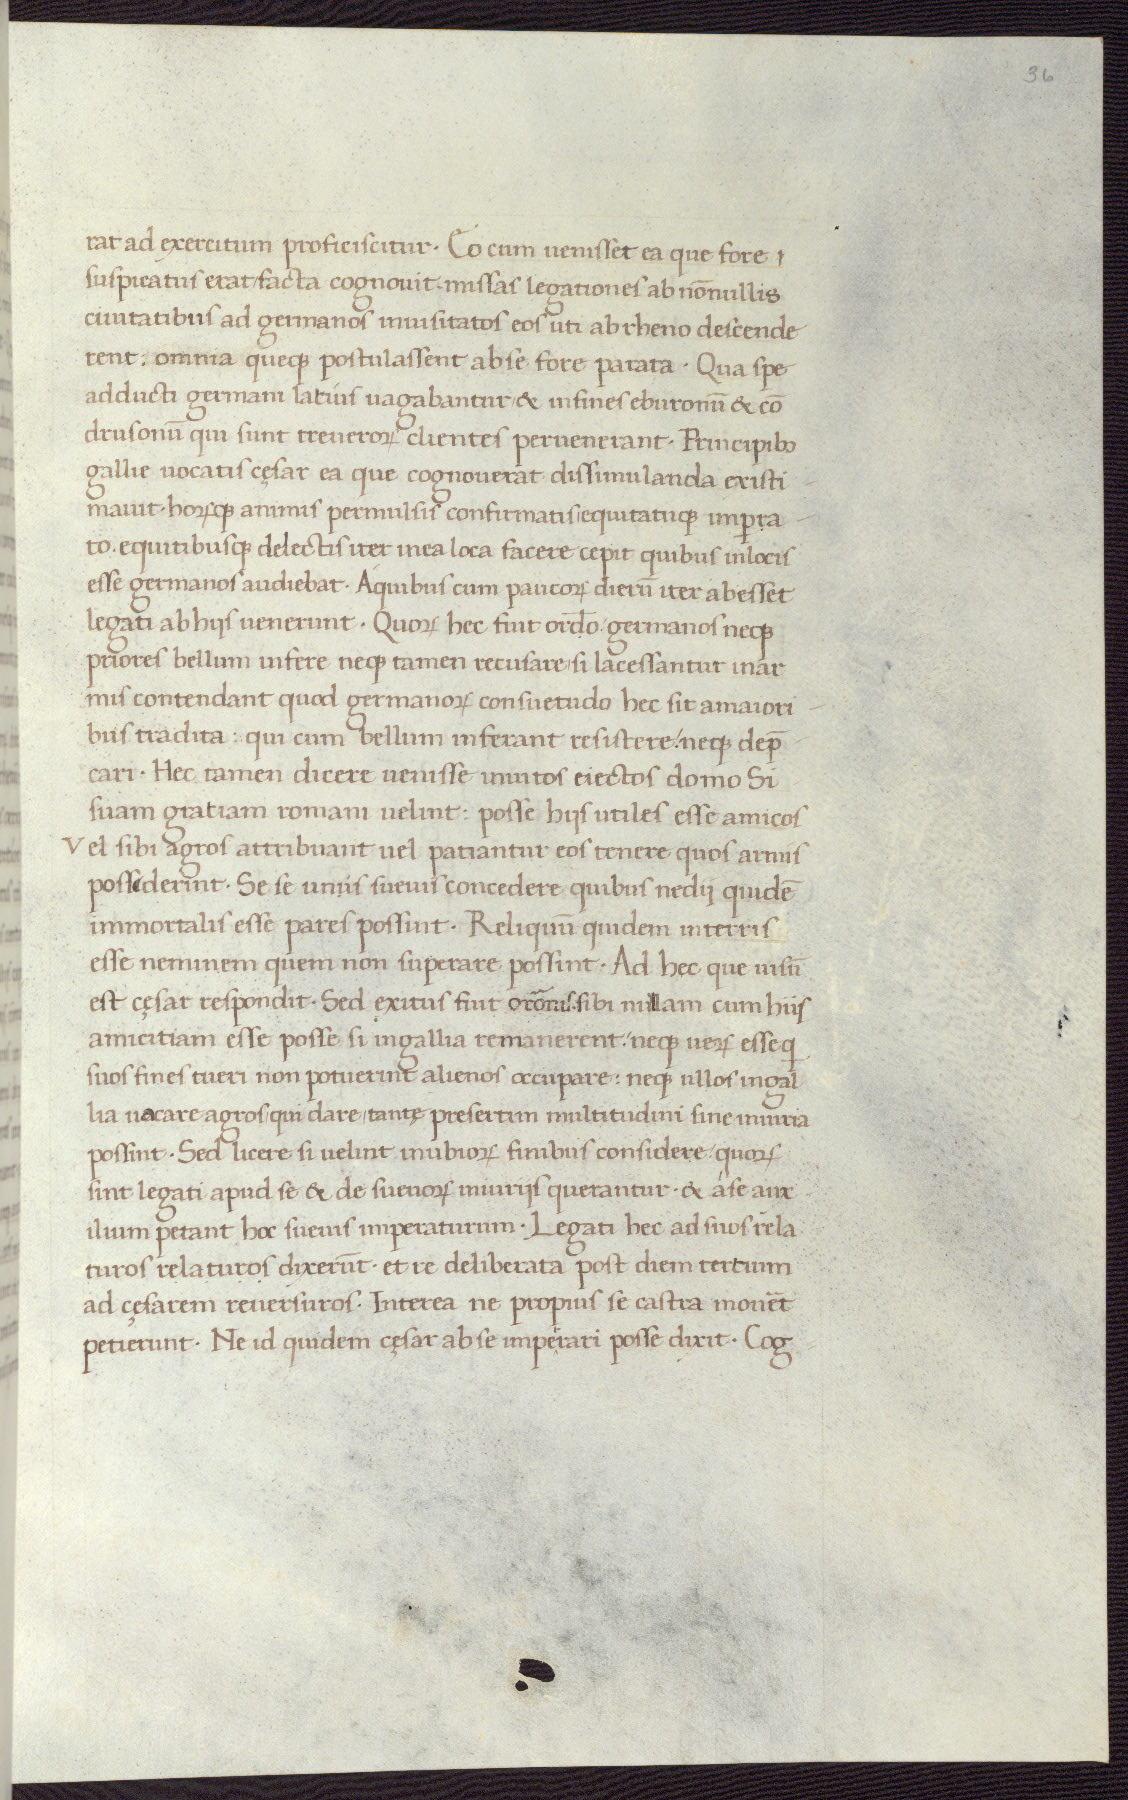 36
rat ad exercitum proficiscitur · Eo cum uenisset ea que fore ı
suspicatus erat facta cognouit · missas legationes ab nōnullis
ciuitatibus ad germanos inuisitatos eos uti ab rheno descende
rent : omnia queqꝫ postulassent ab se fore parata · Qua spe
adducti germani latius uagabantur & in fines eburonū & cō
drusonū qui sunt treueroꝝ clientes peruenerant · Principibꝰ
gallie uocatis cęsar ea que cognouerat dissimulanda existi
mauit · hoꝝqꝫ animis permulsis confirmatis equitatuqꝫ imꝑra
to · equitibusqꝫ delectis iter in ea loca facere cepit quibus in locis
esse germanos audiebat · A quibus cum paucoꝝ dierū iter abesset
legati ab hijs uenerunt · Quoꝝ hec fuit ordo germanos neqꝫ
priores bellum infere neqꝫ tamen recusare si lacessantur in ar
mis contendant quod germanoꝝ consuetudo hec sit a maiori
bus tradita : qui cum bellum inferant resistere : neqꝫ dep̄
cari · Hec tamen dicere uenisse inuitos eiectos domo Si
suam gratiam romani uelint : posse hijs utiles esse amicos
Vel sibi agros attribuant uel patiantur eos tenere quos armis
possederint · Se se unus sueuis concedere quibus ne dij quidē
immortalis esse pares possint · Reliquū quidem in terris
esse neminem quem non superare possint · Ad hec que uisū
est cęsar respondit · Sed exitus fuit orōnis · sibi nullam cum hijs
amicitiam esse posse si in gallia remanerent : neqꝫ ueꝝ esse q
suos fines tueri non potuerint alienos occupare : neqꝫ ullos in gal
lia uacare agros qui dare tantę presertim multitudini sine iniuria
possint · Sed licere si uelint in ubioꝝ finibus considere quoꝝ
sint legati apud se & de sueuoꝝ iniurijs querantur · & a se aux
ilium petant hoc sueuis imperaturum · Legati hec ad suos rela
turos relaturos dixerūt · et re deliberata post diem tertium
ad cęsarem reuersuros · Interea ne propius se castra mouēt
petierunt · Ne id quidem cęsar ab se imperari posse dixit · Cog